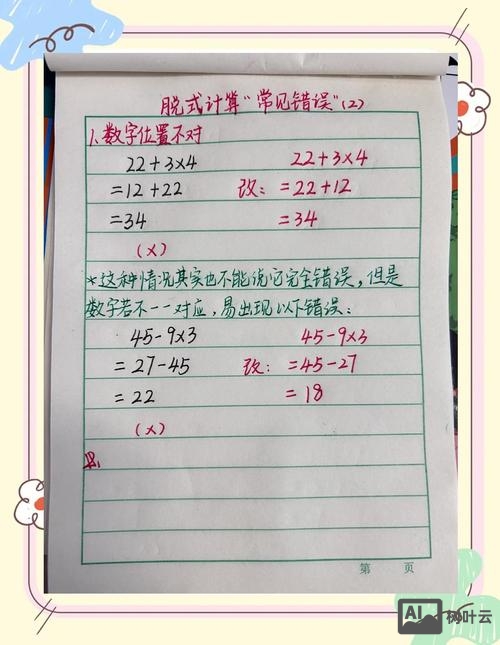 脱式计算"常见错误"(2)
1、数字位置不对
22+3×4 22+3×4
=12+22 改: =22+12
=34 =34
(×)
*这种情况其实也不能说它完全错误,但是
数字若不一一对应,易出现以下错误:
45-9×3 45-9×3
=27-45 改: =45-27
=22 =18
(×)
第 页
AI 树叶云